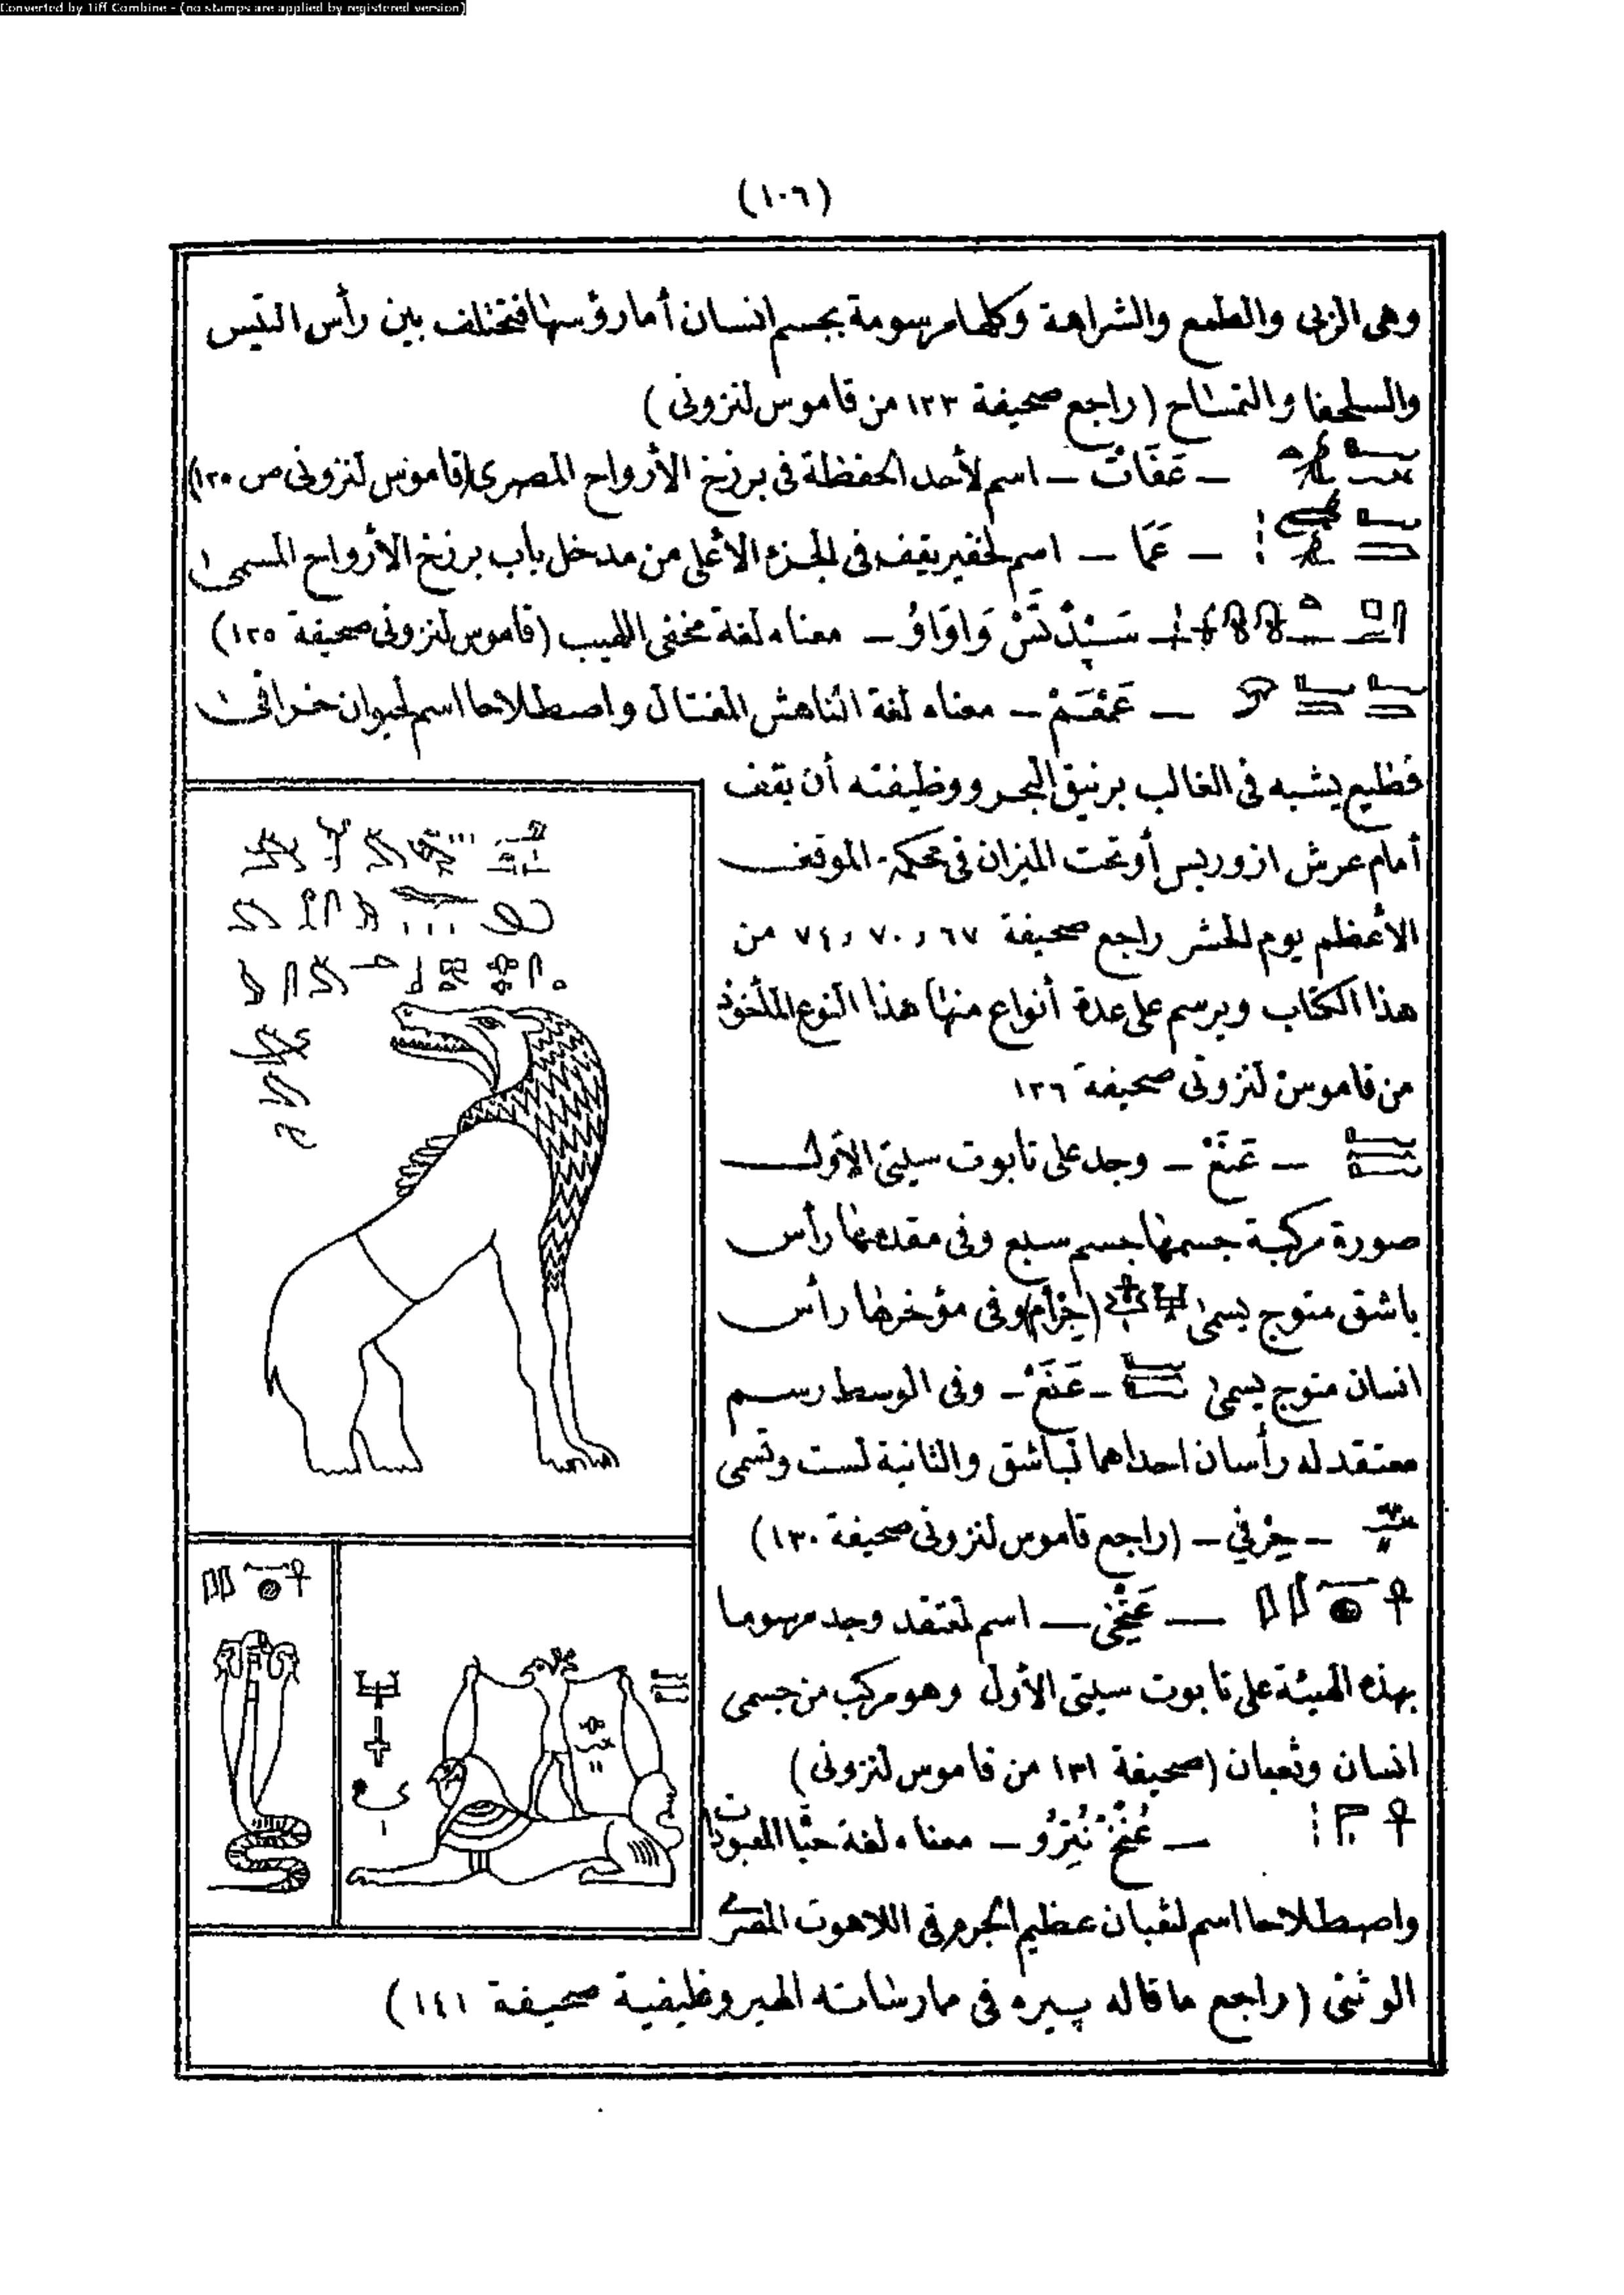 Converted by Tiff Combine - (no stamps are applied by registered version)
(١٠٦)
وهى الزبى والطمع والشراهة وكلها مرسومة بجسم انسان أما رؤسها فتختلف بين رأس التيس
والسلحفا والتمساح (راجع صحيفة ١٢٣ من قاموس لنزونى)
– عَفَاتْ – اسم لأحد الحفظة فى برزخ الأرواح المصرى (قاموس لنزونى ص ١٢٥)
– عَمَا – اسم لخفير يقف فى الجزء الأعلى من مدخل باب برزخ الأرواح المسمى
وَاوَاوُ – معناه لغة مخفى اللهيب (قاموس لنزونى صحيفة ١٢٥)
– عَمْعَمْ – معناه لغة الناهش المغتال واصطلاحا اسم لحيوان خرافى
فظيع يشبه فى الغالب برنيق البحر ووظيفته أن يقف
أمام عرش ازوريس أو تحت الميزان فى محكمة الموقف
الأعظم يوم الحشر راجع صحيفة ٦٧ و ٧٠ و ٧٤ من
هذا الكتاب ويرسم على عدة أنواع منها هذا النوع المأخوذ
من قاموس لنزونى صحيفة ١٢٦
– عَنَعْ – وجد على تابوت سيتى الأول
صورة مركبة جسمها جسم سبع وفى مقدمها رأس
باشق متوج يسمى (حِرْأم) وفى مؤخرها رأس
انسان متوج يسمى – عَنَعْ – وفى الوسط رسم
معتقد له رأسان احداهما لباشق والثانية لست وتسمى
– حِرْفِي – (راجع قاموس لنزونى صحيفة ١٣٠)
– عَنْخِى – اسم لمعتقد وجد مرسوما
بهذه الهيئة على تابوت سيتى الأول وهو مركب من جسمى
انسان وثعبان (صحيفة ١٣١ من قاموس لنزونى)
– عُنْخْ نُتِرُو – معناه لغة حياة المعبودات
واصطلاحا اسم لثعبان عظيم الجرم فى اللاهوت المصرى
الوثنى (راجع ما قاله پيره فى مارساته الهيروغليفية صحيفة ١٤١)